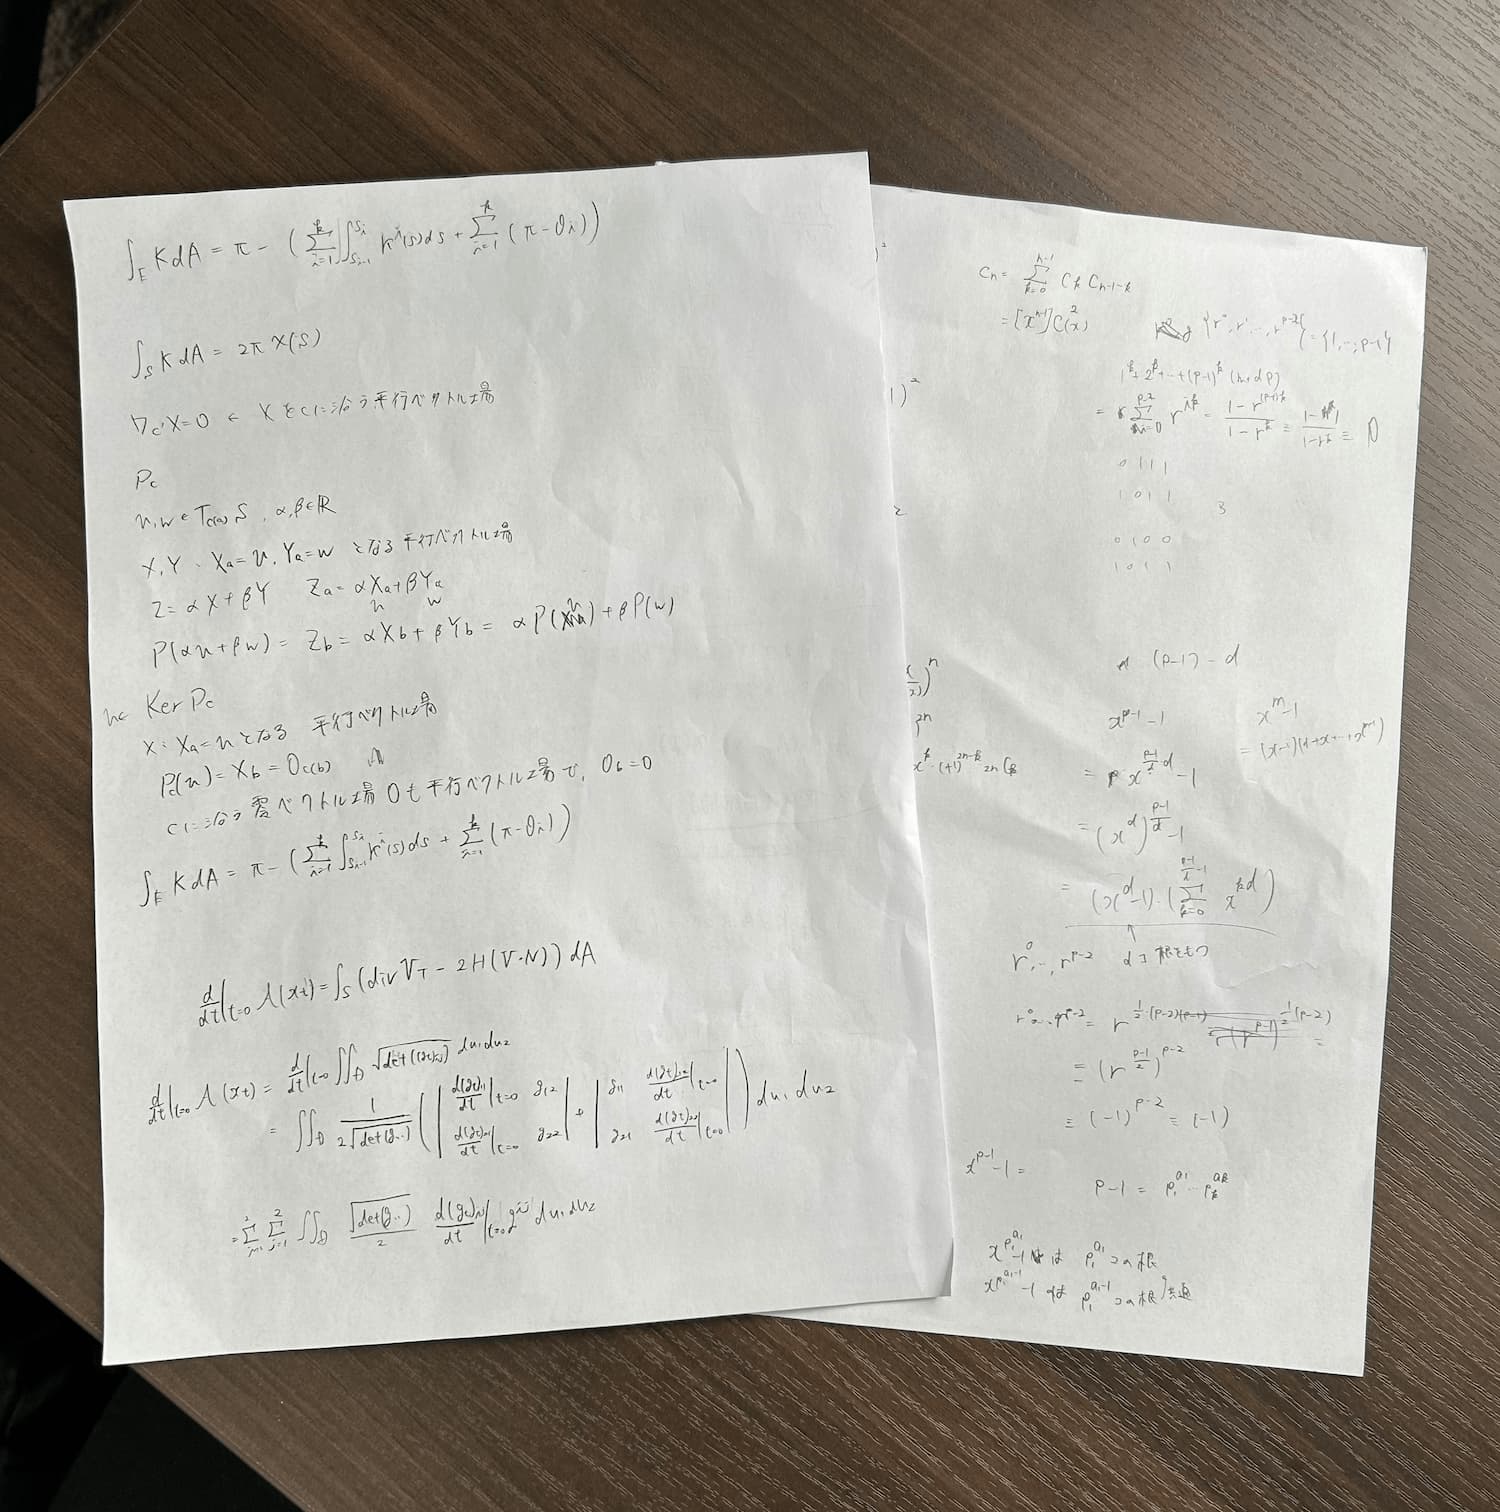 ∫_E K dA = π - (Σ_{i=1}^{k} ∫_{S_{i-1}}^{S_i} κ^i(s) ds + Σ_{i=1}^{k} (π - θi))
∫_S K dA = 2π χ(S)
∇_{c'} X = 0 ← X を cに沿う平行ベクトル場
P_c
u, w ∈ T_{c(a)} S , α, β ∈ ℝ
X, Y : X_a = u, Y_a = w となる 平行ベクトル場
Z = αX + βY Z_a = αX_a + βY_a
u w
P(αu + βw) = Z_b = αX_b + βY_b = αP(u) + βP(w)
u ∈ Ker P_c
X : X_a = u となる 平行ベクトル場
P_c(u) = X_b = 0_{c(b)}
cに沿う 零ベクトル場 0も平行ベクトル場で, 0_b = 0
∫_E K dA = π - (Σ_{i=1}^{k} ∫_{S_{i-1}}^{S_i} κ^i(s) ds + Σ_{i=1}^{k} (π - θi))
d/dt|_{t=0} A(x_t) = ∫_S (div V_T - 2H(V·N)) dA
d/dt|_{t=0} A(x_t) = d/dt|_{t=0} ∬_D √det((g_t)_{ij}) du_1 du_2
= ∬_D 1/(2√det(g..)) ( | d(g_t)_{11}/dt|_{t=0} g_{12} | + | g_{11} d(g_t)_{12}/dt|_{t=0} | ) du_1 du_2
| d(g_t)_{21}/dt|_{t=0} g_{22} | | g_{21} d(g_t)_{22}/dt|_{t=0} |
= Σ_{i=1}^{2} Σ_{j=1}^{2} ∬_D √det(g..)/2 d(g_t)_{ij}/dt|_{t=0} g^{ij} du_1 du_2
)^2
1)^2
2
x)^n
2n
x^k · (+1)^{2n-k} 2nC_k
C_n = Σ_{k=0}^{n-1} C_k C_{n-1-k}
= [x^{n-1}] C(x)^2
{r^0, r^1, …, r^{p-2}} = {1, …, p-1}
1^k + 2^k + … + (p-1)^k (mod p)
= Σ_{i=0}^{p-2} r^{ik} = (1 - r^{(p-1)k})/(1 - r^k) ≡ (1 - 1)/(1 - r^k) ≡ 0
0 1 1 1
1 0 1 1
3
0 1 0 0
1 0 1 1
d (p-1) - d
x^{p-1} - 1
x^m - 1
= (x-1)(1+x+…+x^{m-1})
= x^{(p-1)/d · d} - 1
= (x^d)^{(p-1)/d} - 1
= (x^d - 1)·(Σ_{k=0}^{(p-1)/d - 1} x^{kd})
↑
r^0, …, r^{p-2} dコ 根をもつ
r^0 … r^{p-2} = r^{1/2·(p-2)(p-1)} =
= (r^{(p-1)/2})^{p-2}
≡ (-1)^{p-2} ≡ (-1)
x^{p-1} - 1 =
p-1 = p_1^{a_1} … p_k^{a_k}
x^{p_1^{a_1}} - 1 は p_1^{a_1} コの根
x^{p_1^{a_1-1}} - 1 は p_1^{a_1-1} コの根 共通